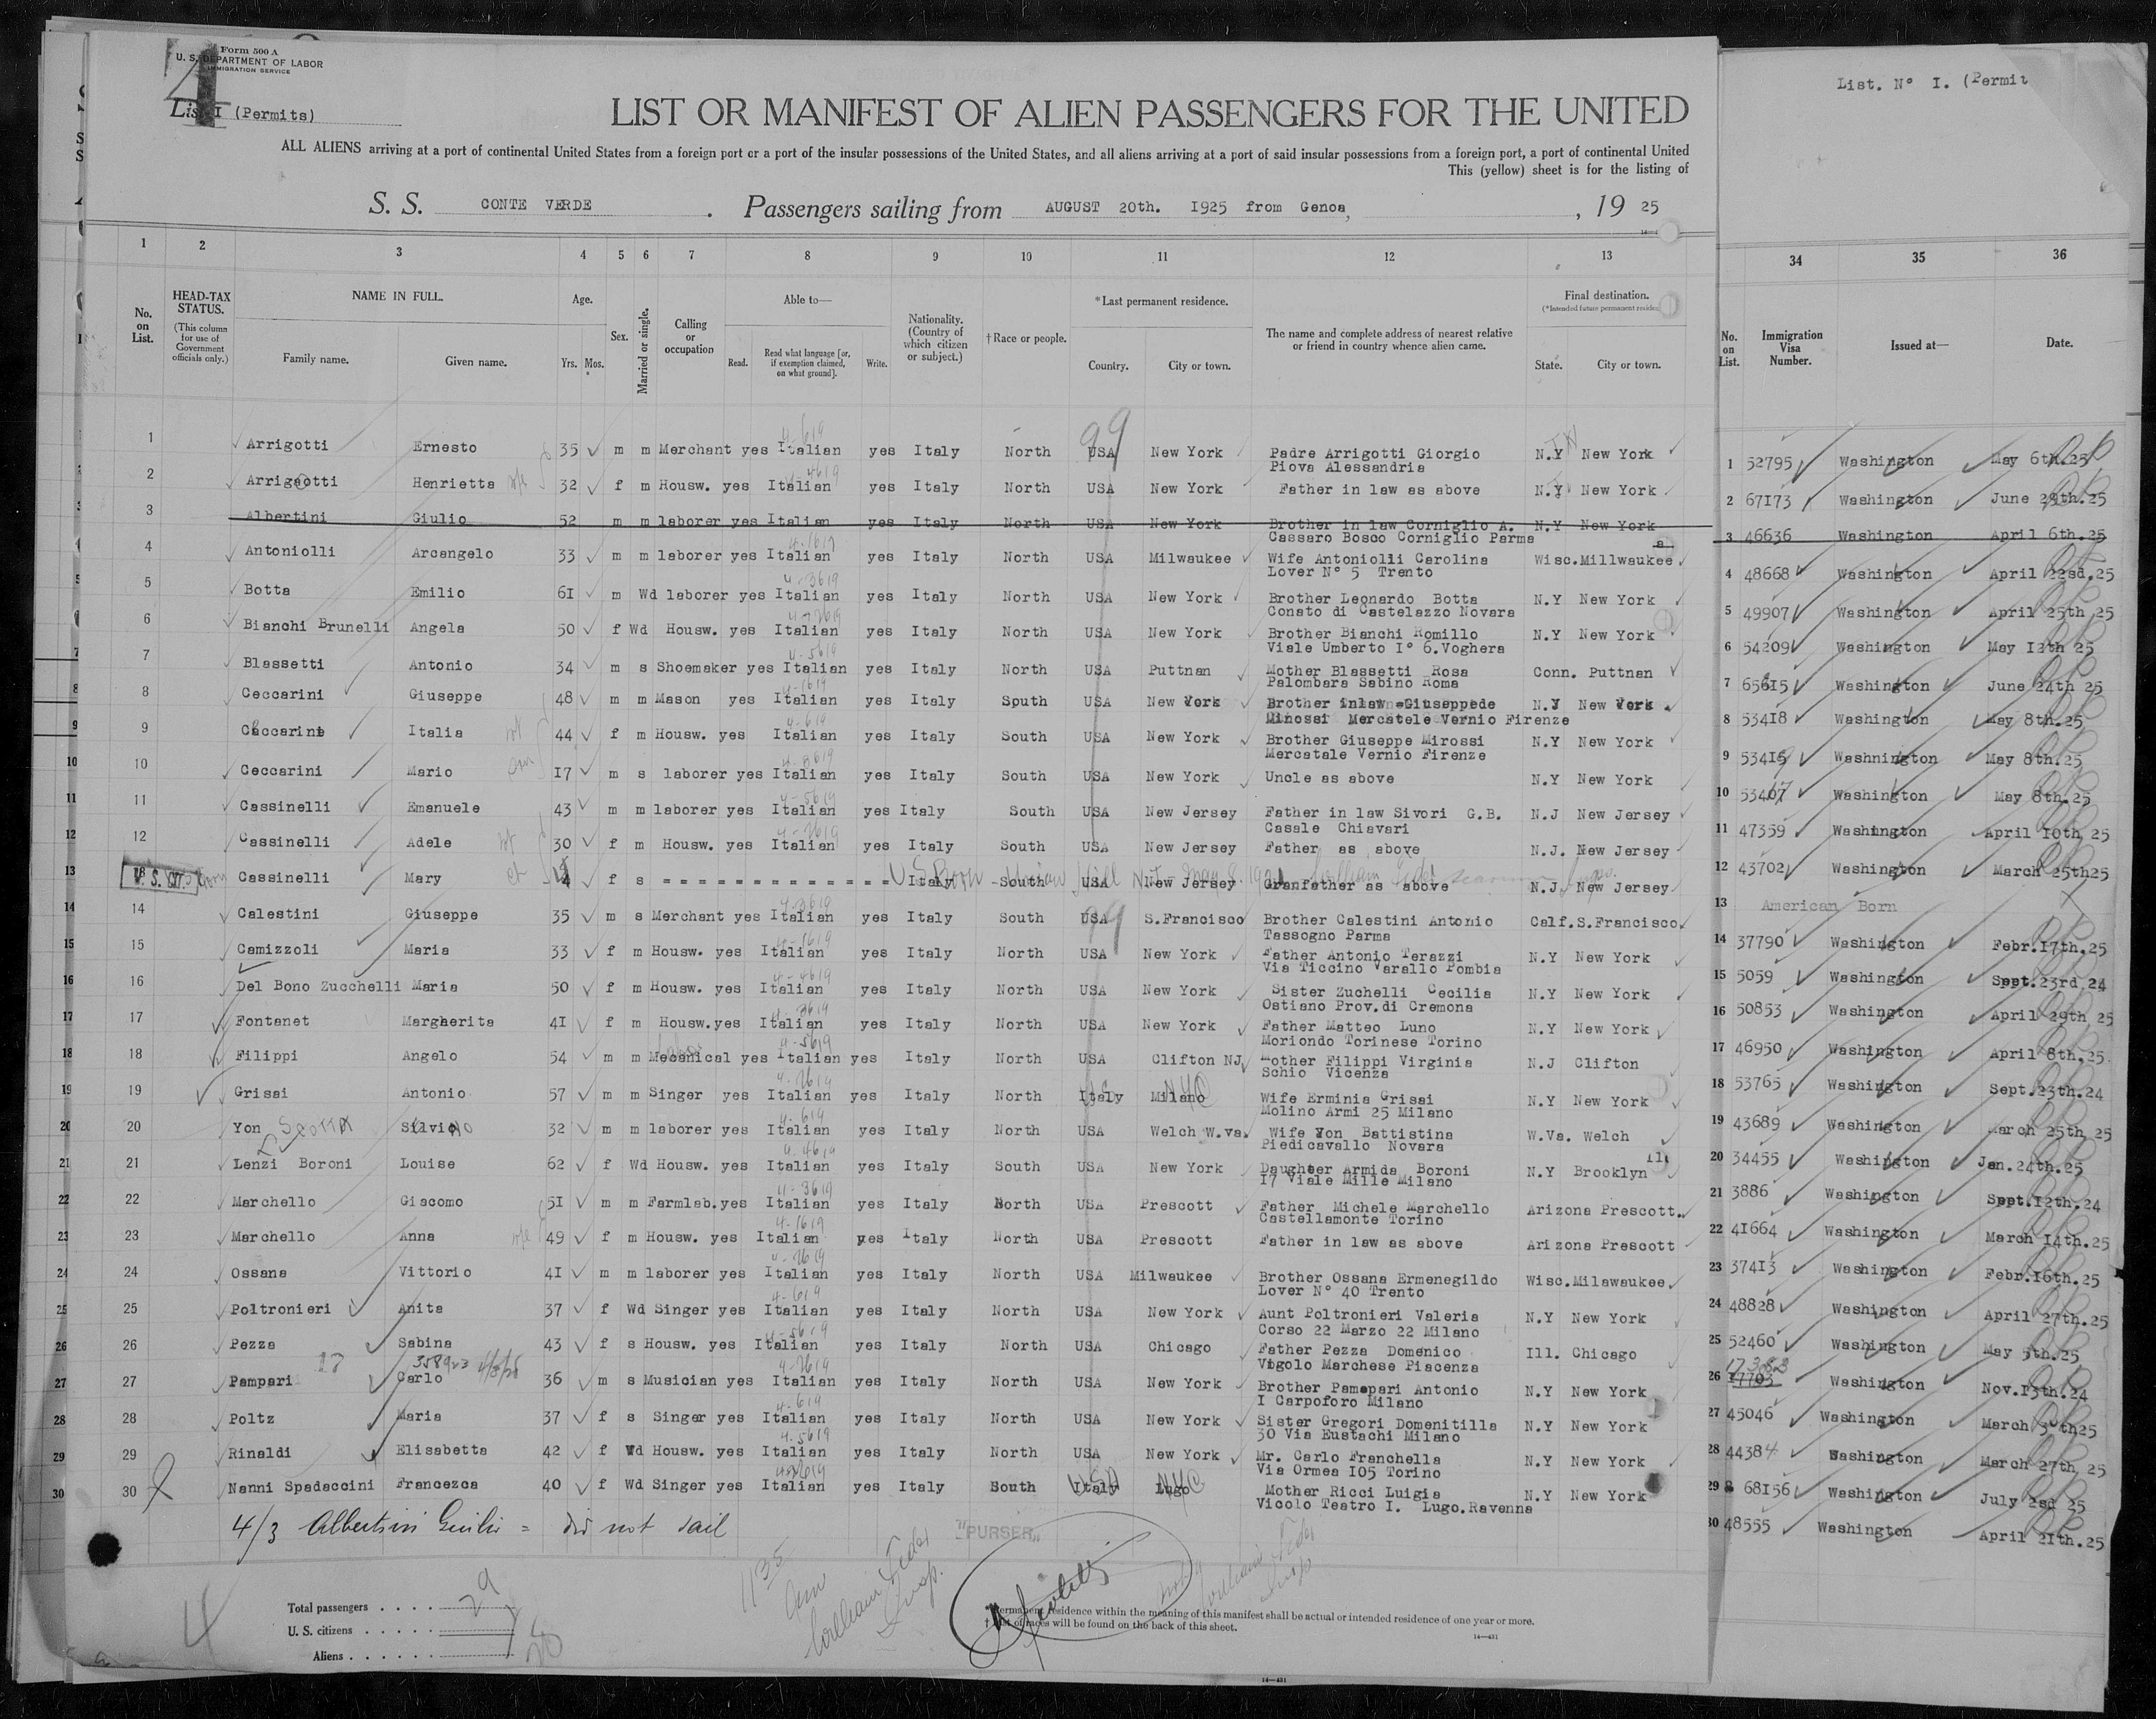 Form 500 A
U. S. DEPARTMENT OF LABOR
IMMIGRATION SERVICE
List I (Permits)
4
List. N° I. (Permit
LIST OR MANIFEST OF ALIEN PASSENGERS FOR THE UNITED
ALL ALIENS arriving at a port of continental United States from a foreign port or a port of the insular possessions of the United States, and all aliens arriving at a port of said insular possessions from a foreign port, a port of continental United
This (yellow) sheet is for the listing of
S. S. CONTE VERDE . Passengers sailing from AUGUST 20th. 1925 from Genoa, , 19 25
1 2 3 4 5 6 7 8 9 10 11 12 13 34 35 36
No. on List. HEAD-TAX STATUS. (This column for use of Government officials only.) NAME IN FULL. Family name. Given name. Age. Yrs. Mos. Sex. Married or single. Calling or occupation Able to— Read. Read what language [or, if exemption claimed, on what ground]. Write. Nationality. (Country of which citizen or subject.) †Race or people. *Last permanent residence. Country. City or town. The name and complete address of nearest relative or friend in country whence alien came. Final destination. (*Intended future permanent residence) State. City or town. No. on List. Immigration Visa Number. Issued at— Date.
1 Arrigotti Ernesto 35 m m Merchant yes Italian yes Italy North USA New York Padre Arrigotti Giorgio N.Y New York
Piova Alessandria
2 Arrigotti Henrietta 32 f m Housw. yes Italian yes Italy North USA New York Father in law as above N.Y New York
3 Albertini Giulio 52 m m laborer yes Italian yes Italy North USA New York Brother in law Corniglio A. N.Y New York
Cassaro Bosco Corniglio Parma
4 Antoniolli Arcangelo 33 m m laborer yes Italian yes Italy North USA Milwaukee Wife Antoniolli Carolina Wisc. Millwaukee
Lover N° 5 Trento
5 Botta Emilio 61 m Wd laborer yes Italian yes Italy North USA New York Brother Leonardo Botta N.Y New York
Conato di Castelazzo Novara
6 Bianchi Brunelli Angela 50 f Wd Housw. yes Italian yes Italy North USA New York Brother Bianchi Romillo N.Y New York
Viale Umberto I° 6.Voghera
7 Blassetti Antonio 34 m s Shoemaker yes Italian yes Italy North USA Puttnan Mother Blassetti Rosa Conn. Puttnan
Palombara Sabino Roma
8 Ceccarini Giuseppe 48 m m Mason yes Italian yes Italy South USA New York Brother inlaw Giuseppede N.Y New York
Minossi Mercatele Vernio Firenze
9 Ceccarini Italia 44 f m Housw. yes Italian yes Italy South USA New York Brother Giuseppe Mirossi N.Y New York
Mercatale Vernio Firenze
10 Ceccarini Mario 17 m s laborer yes Italian yes Italy South USA New York Uncle as above N.Y New York
11 Cassinelli Emanuele 43 m m laborer yes Italian yes Italy South USA New Jersey Father in law Sivori G.B. N.J New Jersey
Casale Chiavari
12 Cassinelli Adele 30 f m Housw. yes Italian yes Italy South USA New Jersey Father as above N.J. New Jersey
13 U. S. CIT. Cassinelli Mary 4 f s U.S. Born Italy South USA New Jersey Granfather as above N.J. New Jersey
14 Calestini Giuseppe 35 m s Merchant yes Italian yes Italy South USA S.Francisco Brother Calestini Antonio Calf. S.Francisco
Tassogno Parma
15 Camizzoli Maria 33 f m Housw. yes Italian yes Italy North USA New York Father Antonio Terazzi N.Y New York
Via Ticcino Varallo Pombia
16 Del Bono Zucchelli Maria 50 f m Housw. yes Italian yes Italy North USA New York Sister Zuchelli Cecilia N.Y New York
Ostiano Prov.di Cremona
17 Fontanet Margherita 41 f m Housw. yes Italian yes Italy North USA New York Father Matteo Luno N.Y New York
Moriondo Torinese Torino
18 Filippi Angelo 54 m m Mecanical yes Italian yes Italy North USA Clifton NJ Mother Filippi Virginia N.J Clifton
Schio Vicenza
19 Grisai Antonio 57 m m Singer yes Italian yes Italy North Italy Milano Wife Erminia Grisai N.Y New York
Molino Armi 25 Milano
20 Yon Scotta Silvino 32 m m laborer yes Italian yes Italy North USA Welch W.va. Wife Yon Battistina W.Va. Welch
Piedicavallo Novara
21 Lenzi Boroni Louise 62 f Wd Housw. yes Italian yes Italy South USA New York Daughter Armida Boroni N.Y Brooklyn
17 Viale Mille Milano
22 Marchello Giacomo 51 m m Farmlab. yes Italian yes Italy North USA Prescott Father Michele Marchello Arizona Prescott.
Castellamonte Torino
23 Marchello Anna 49 f m Housw. yes Italian yes Italy North USA Prescott Father in law as above Arizona Prescott
24 Ossana Vittorio 41 m m laborer yes Italian yes Italy North USA Milwaukee Brother Ossana Ermenegildo Wisc. Milawaukee
Lover N° 40 Trento
25 Poltronieri Anita 37 f Wd Singer yes Italian yes Italy North USA New York Aunt Poltronieri Valeria N.Y New York
Corso 22 Marzo 22 Milano
26 Pezza Sabina 43 f s Housw. yes Italian yes Italy North USA Chicago Father Pezza Domenico Ill. Chicago
Vigolo Marchese Piacenza
27 Pampari Carlo 36 m s Musician yes Italian yes Italy North USA New York Brother Pamepari Antonio N.Y New York
I Carpoforo Milano
28 Poltz Maria 37 f s Singer yes Italian yes Italy North USA New York Sister Gregori Domenitilla N.Y New York
30 Via Eustachi Milano
29 Rinaldi Elisabetta 42 f Wd Housw. yes Italian yes Italy North USA New York Mr. Carlo Franchella N.Y New York
Via Ormea 105 Torino
30 Nanni Spadaccini Francezca 40 f Wd Singer yes Italian yes Italy South Italy Lugo Mother Ricci Luigia N.Y New York
Vicolo Teatro I. Lugo.Ravenna
1 52795 Washington May 6th.25
2 67173 Washington June 29th.25
3 46636 Washington April 6th.25
4 48668 Washington April 22sd.25
5 49907 Washington April 25th 25
6 54209 Washington May 12th 25
7 65615 Washington June 24th 25
8 53418 Washington May 8th.25
9 53419 Washnington May 8th.25
10 53407 Washington May 8th.25
11 47359 Washington April 10th 25
12 43702 Washington March 25th25
13 American Born
14 37790 Washington Febr.17th.25
15 5059 Washington Sept.23rd 24
16 50853 Washington April 29th 25
17 46950 Washington April 8th.25.
18 53765 Washington Sept.23th.24
19 43689 Washington March 25th 25
20 34455 Washington Jan.24th.25
21 3886 Washington Sept.12th.24
22 41664 Washington March 14th.25
23 37413 Washington Febr.16th.25
24 48828 Washington April 27th.25
25 52460 Washington May 5th.25
26 17703 Washington Nov.13th.24
27 45046 Washington March 30th25
28 44384 Washington March 27th 25
29 68156 Washington July 2sd 25
30 48555 Washington April 21th.25
4/3 Albertini Giulio = did not sail
"PURSER"
1135 am
William Feder
Insp.
Total passengers . . . . 29
U. S. citizens . . . . . 1
Aliens . . . . . . 28
4
*Permanent residence within the meaning of this manifest shall be actual or intended residence of one year or more.
† List of races will be found on the back of this sheet.
14—431
14—431